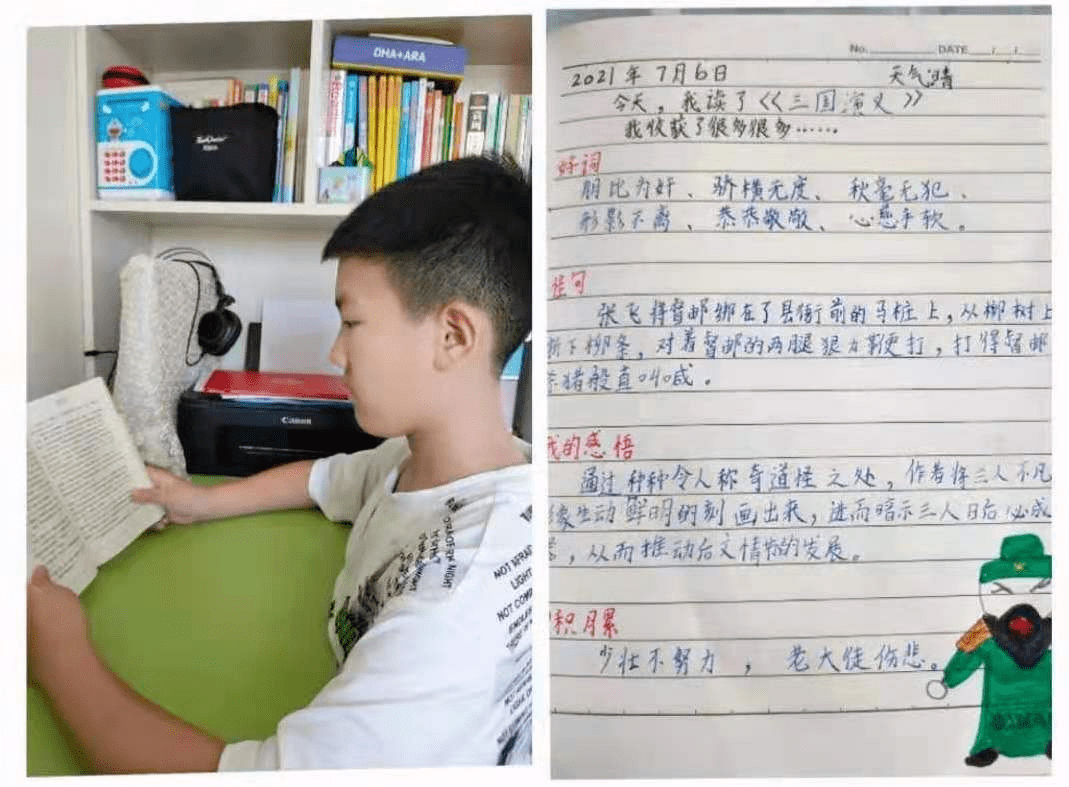 DHA+ARA
Canon
NOT AFRAID
LIGHT
NOT COM
No. DATE / /
2021年7月6日 天气晴
今天，我读了《三国演义》
我收获了很多很多……
好词
朋比为奸、骄横无度、秋毫无犯、
形影不离、恭恭敬敬、心慈手软。
佳句
张飞将督邮绑在了县衙前的马桩上，从柳树上
折下柳条，对着督邮的两腿狠力鞭打，打得督邮
杀猪般直叫喊。
我的感悟
通过种种令人称奇道怪之处，作者将三人不凡
象生动鲜明的刻画出来，进而暗示三人日后必成
，从而推动后文情节的发展。
积累
少壮不努力，老大徒伤悲。